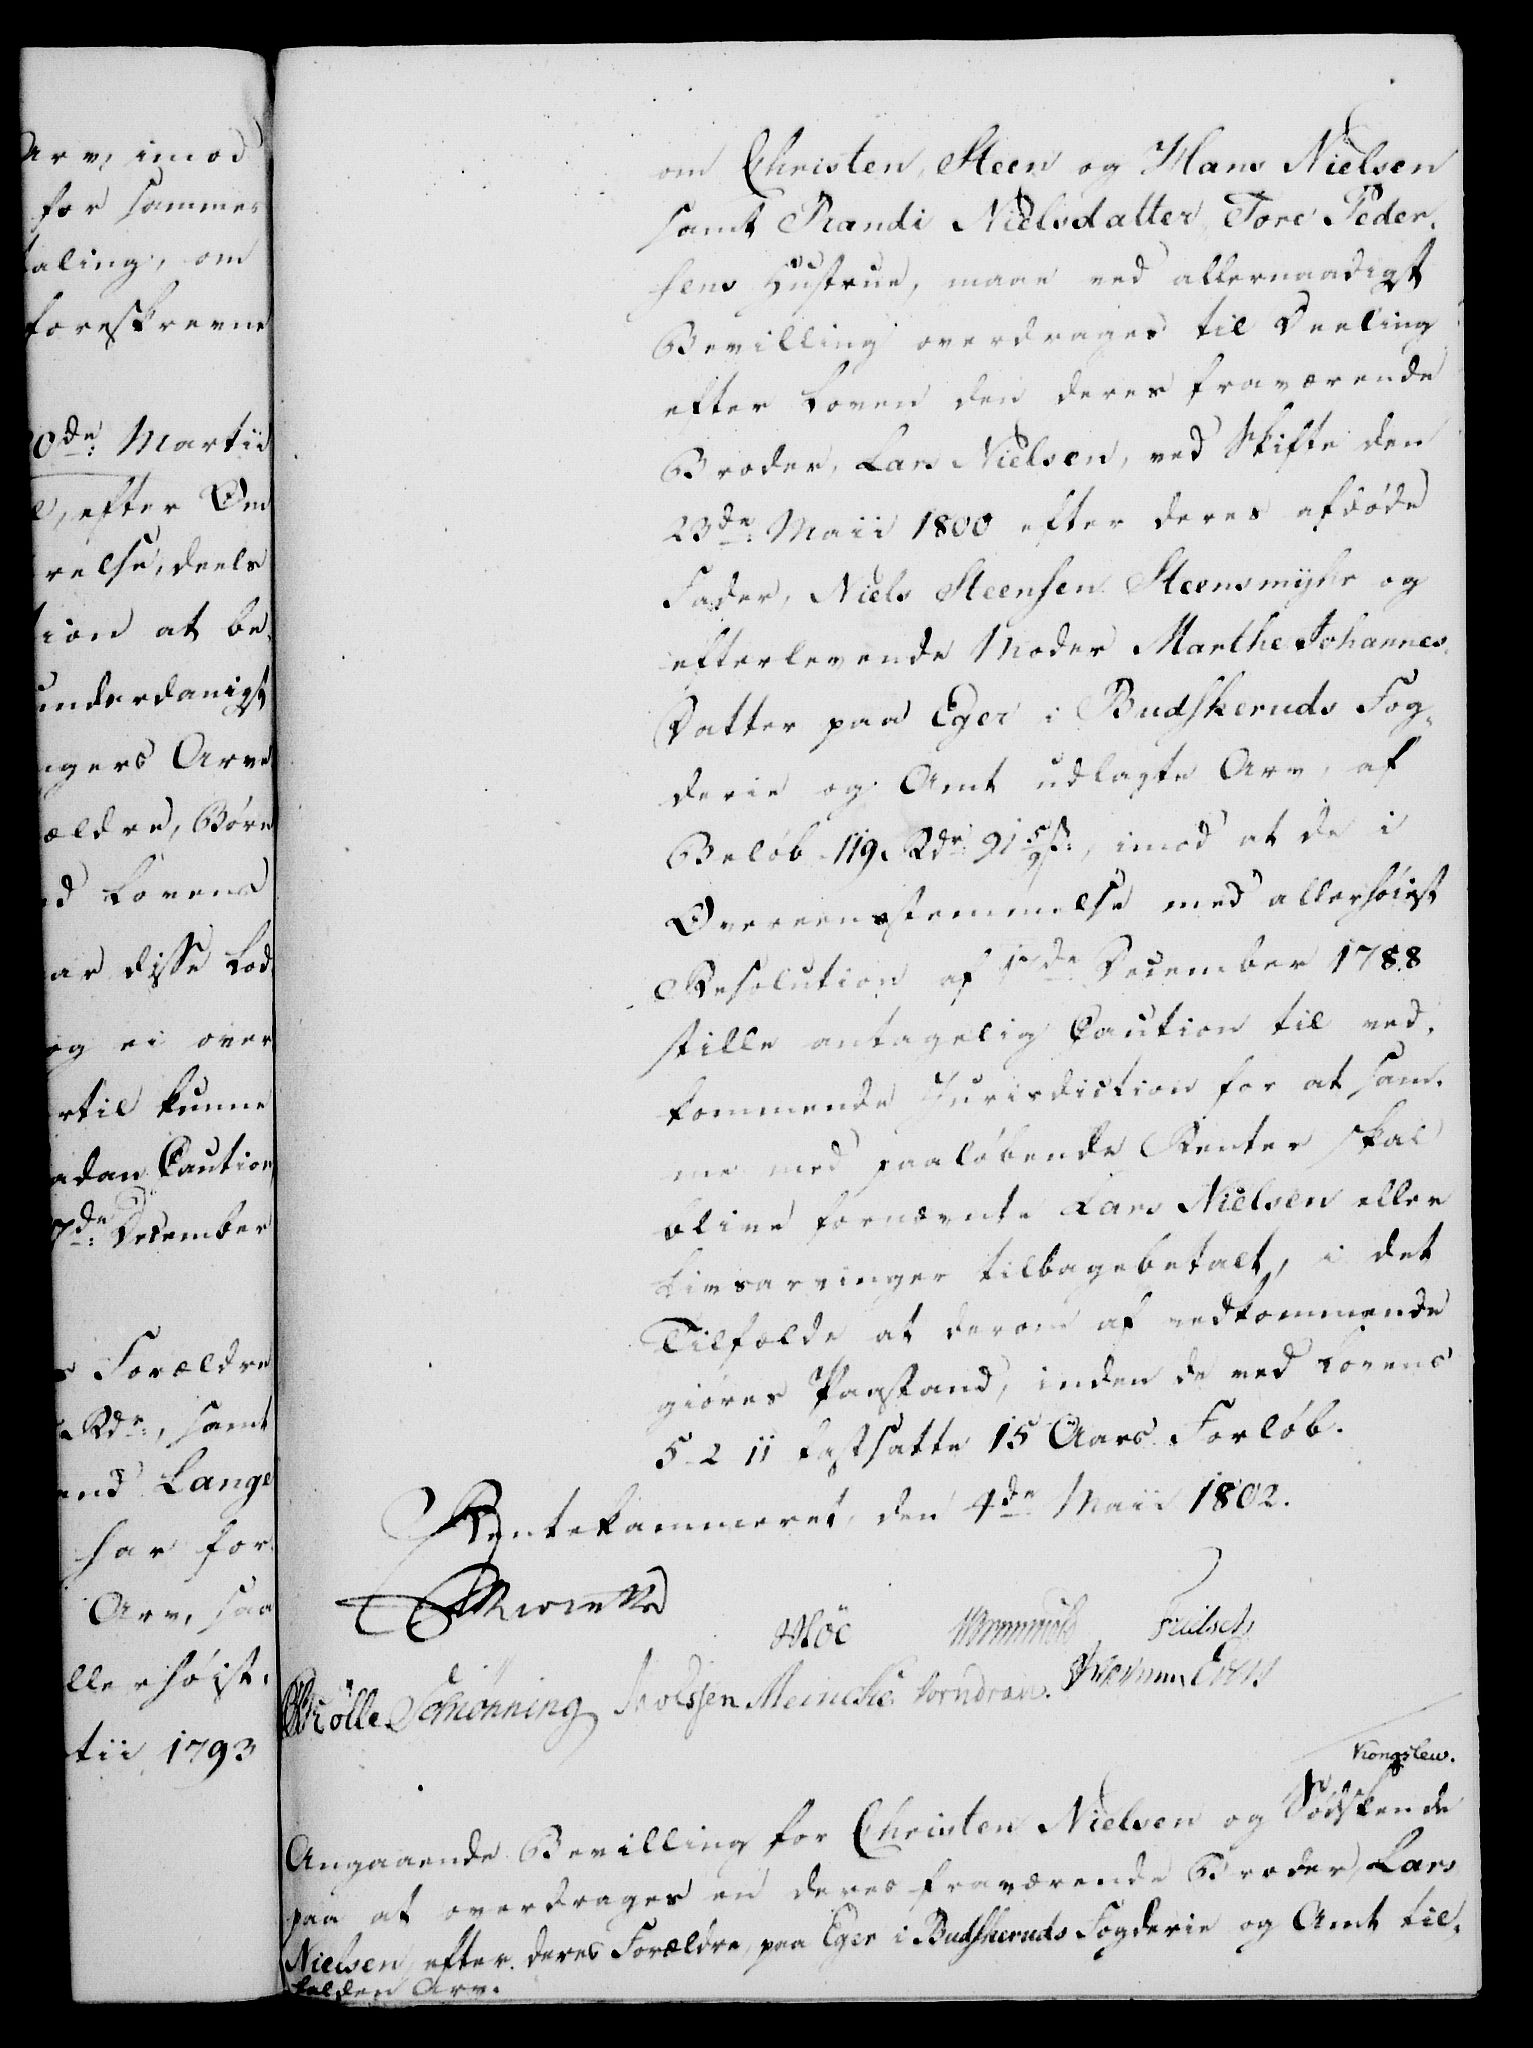 Arv, imod
for sammes
taling, om
foreskrevne
0de: Martii
efter Om
relse, deels
tion at be-
underdanigst
ngers Arve
ældre, Børn
ed Lovens
ar disse Lod
og ei over
rtil kunne
adan Caution
7de: December
s Forældre
Rdr:, samt
and Lange
har for
Arv, saa
llerhøist.
tii 1793
om Christen, Steen og Hans Nielsen
samt Randi Nielsdatter, Tore Peder-
sens Hustrue, maae ved allernaadigst
Bevilling overdrages til Deeling
efter Loven den deres fraværende
Broder, Lars Nielsen, ved Skifte den
23de: Maii 1800 efter deres afdøde
Fader, Niels Steensen Steensmyhr og
efterlevende Moder Marthe Johannes-
Datter paa Eger i Budskeruds Fog-
derie og Amt udlagte Arv, af
Beløb 119 Rdr: 91 5/9 s:, imod at de i
Overeensstemmelse med allerhøist
Resolution af 17de December 1788
stille antagelig Caution til ved-
kommende Jurisdiction for at sam-
me med paaløbende Renter skal
blive fornævnte Lars Nielsen eller
Livsarvinger tilbagebetalt, i det
Tilfælde at derom af vedkommende
giøres Paastand, inden de ved Lovens
5-2-11 fastsatte 15 Aars Forløb.
Rentekammeret, den 4de Maii 1802.
Reventlow
Wormskiold
Schiønning Meincke Vorndran.
Kongslew.
Angaaende Bevilling for Christen Nielsen og Sødskende
paa at overdrages en deres fraværende Broder, Lars
Nielsen, efter deres Forældre, paa Eger i Budskeruds Fogderie og Amt til-
falden Arv.